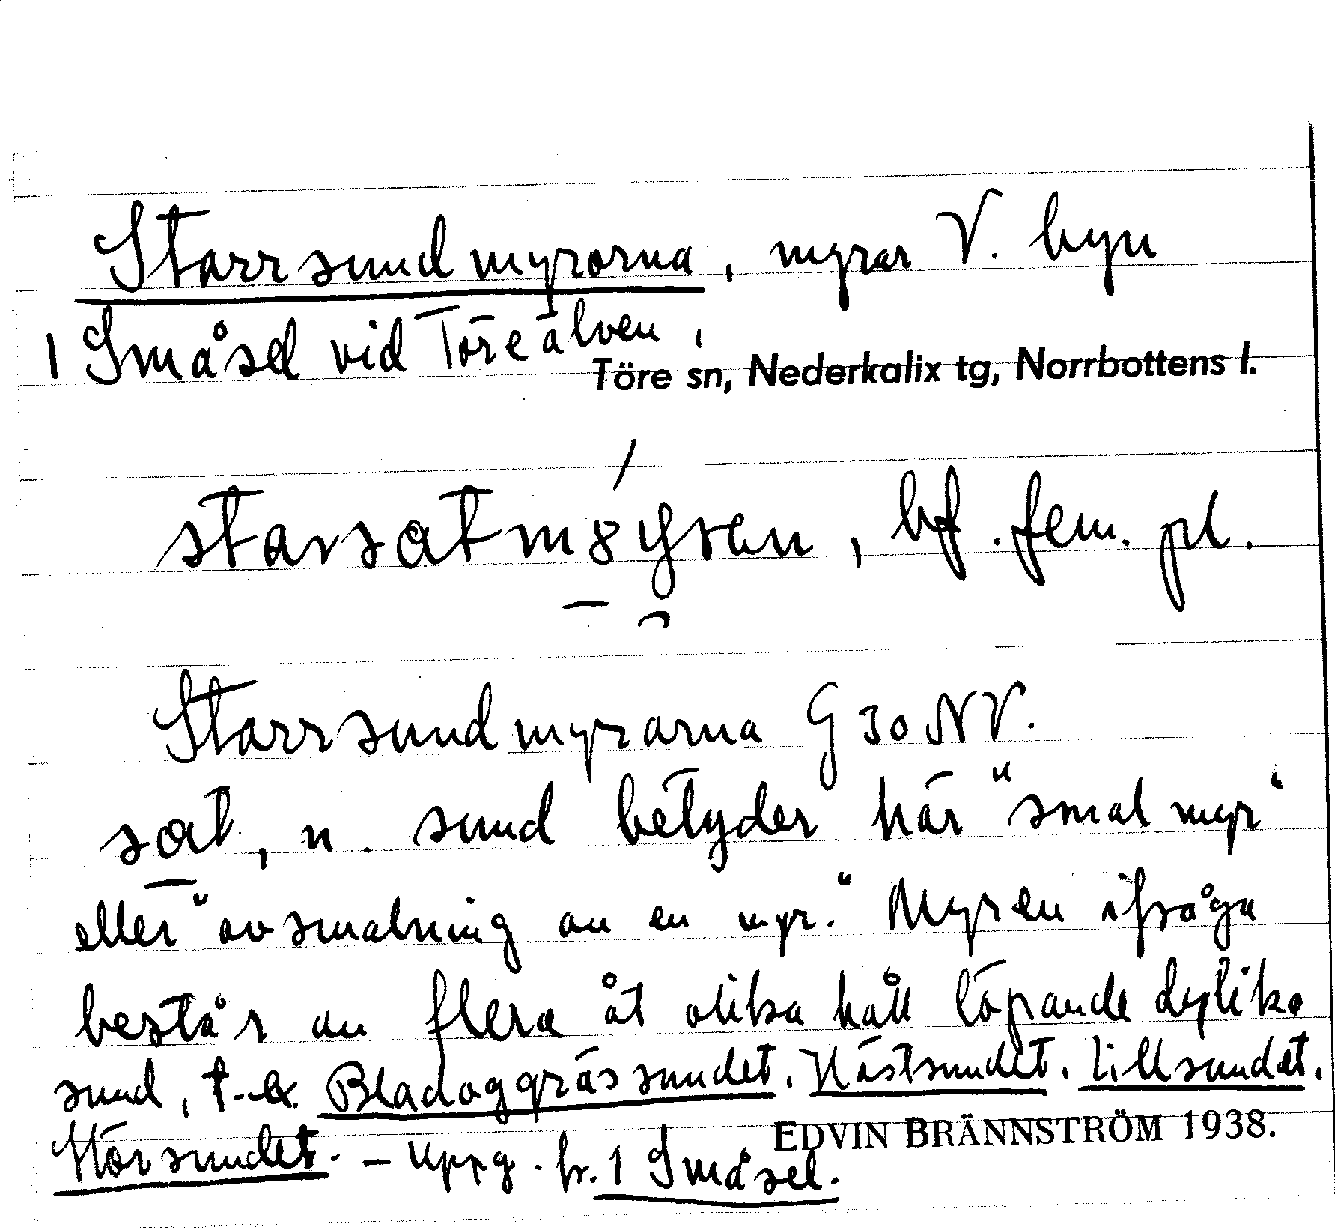 Starrsundmyrorna, myrar V. byn
1 Småsel vid Töreälven,
Töre sn, Nederkalix tg, Norrbottens l.
bf. fem. pl.
Starrsundmyrarna G 30 NV.
sat, n. sund betyder här "smal myr"
eller "avsmalning av en myr." Myren ifråga
består av flera åt olika håll löpande dylika
sund, t-ex Bladoggrässundet. Hästsundet. Lillsundet.
Störsundet. – Uppg. fr. 1 Småsel.
EDVIN BRÄNNSTRÖM 1938.